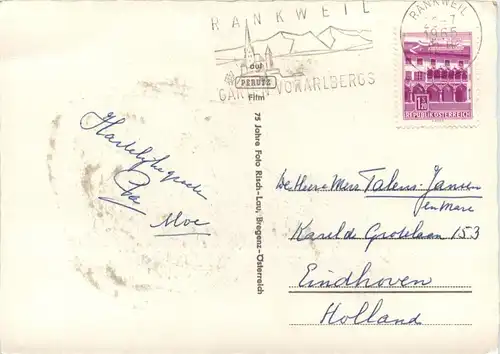 RANKWEIL
GARTEN VORARLBERGS
RANKWEIL
1965
auf
PERUTZ
Film
1.20
REPUBLIK ÖSTERREICH
75 Jahre Foto Risch-Lau, Bregenz-Österreich
Hartelijke groeten
Moe
De Heer en Mevr Talens-Jansen
en Marc
Karel de Grotelaan 153
Eindhoven
Holland